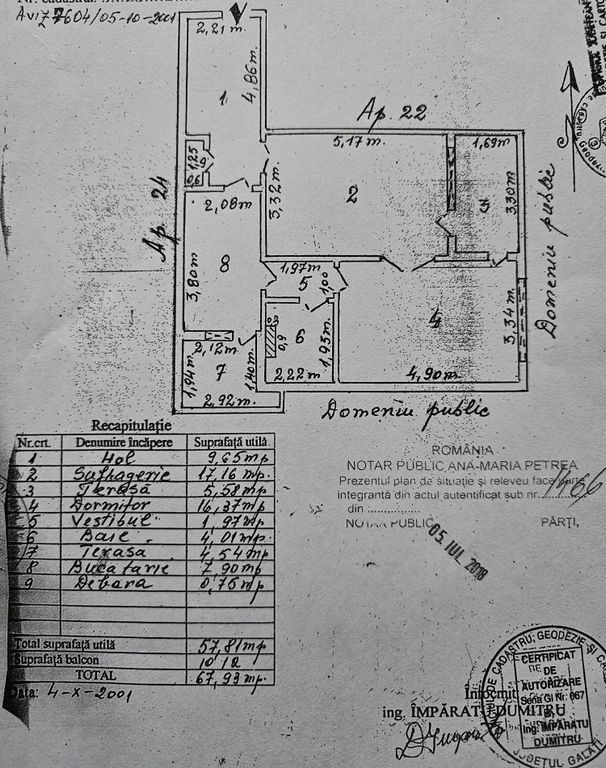 Aviz 7604/05-10-2001
2,21 m.
4,86 m.
1
Ap. 22
5,17 m.
1,69 m.
1,25
9
0,6
2,08 m.
3,32 m.
2
3
3,30 m
Ap. 24
Domeniu public
8
3,80 m
1,97 m.
5
1,00
4
3,34 m.
0,9
6
1,93 m.
2,12 m.
7
1,94 m.
1,40 m.
2,92 m.
2,22 m
4,90 m.
Domeniu public
Recapitulaţie
Nr.crt. Denumire încăpere Suprafaţă utilă
1 Hol 9,65 mp
2 Sufragerie 17,16 mp.
3 Terasă 5,58 mp.
4 Dormitor 16,37 mp.
5 Vestibul 1,97 mp
6 Baie 4,01 mp.
7 Terasa 4,54 mp
8 Bucatarie 7,90 mp
9 Debara 0,75 mp
Total suprafaţă utilă 57,81 mp
Suprafaţă balcon 10,12
TOTAL 67,93 mp.
Data: 4-X-2001
ROMÂNIA
NOTAR PUBLIC, ANA-MARIA PETREA
Prezentul plan de situaţie şi releveu face parte
integrantă din actul autentificat sub nr.
din :..............
NOTAR PUBLIC PĂRŢI,
05. IUL. 2018
Întocmit
ing. ÎMPĂRATU DUMITRU
CADASTRU, GEODEZIE ŞI
CERTIFICAT
DE
AUTORIZARE
Seria Gl Nr. 067
ing. ÎMPĂRATU
DUMITRU
JUDEŢUL GALAŢI